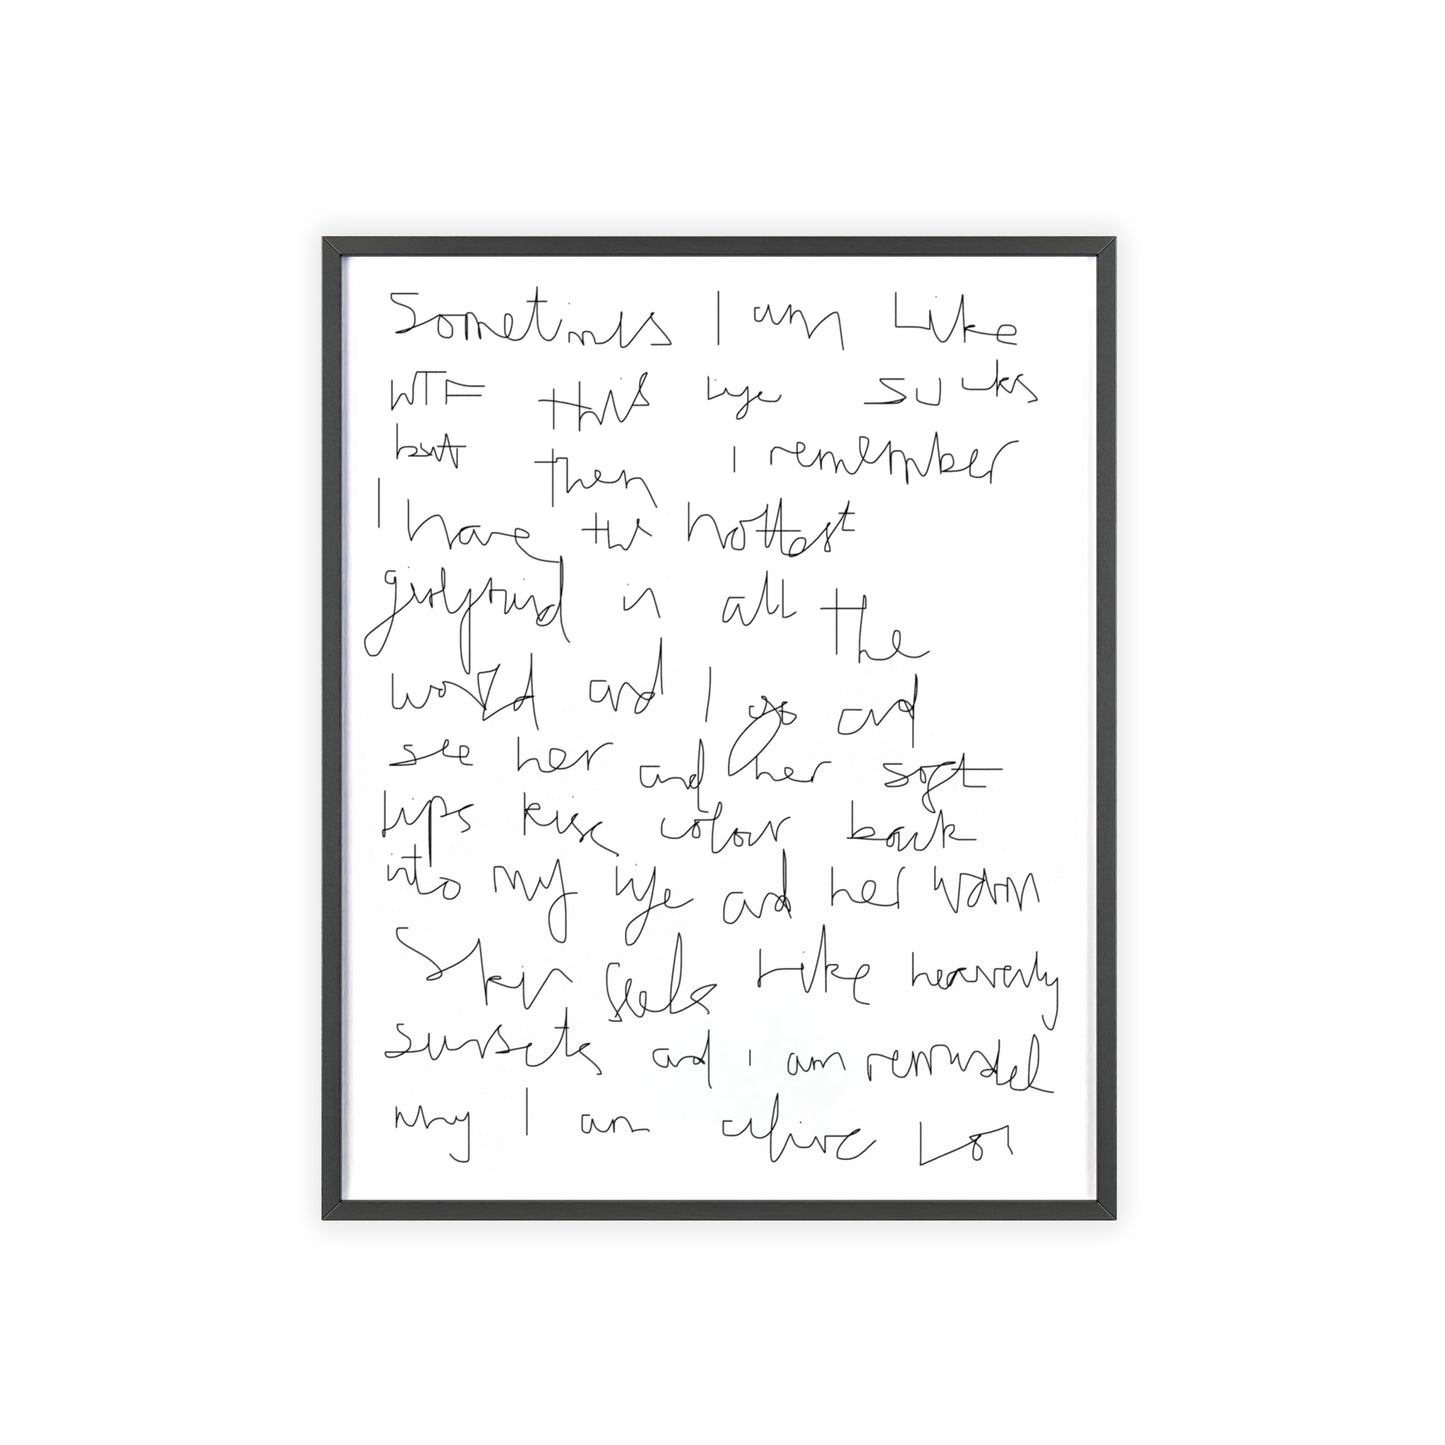 Sometimes I am Like
WTF this life sucks
but then I remember
I have the hottest
girlfriend in all the
world and I go and
see her and her soft
lips kiss colour back
into my life and her warm
Skin feels like heavenly
sunsets and i am reminded
why I am alive Lol